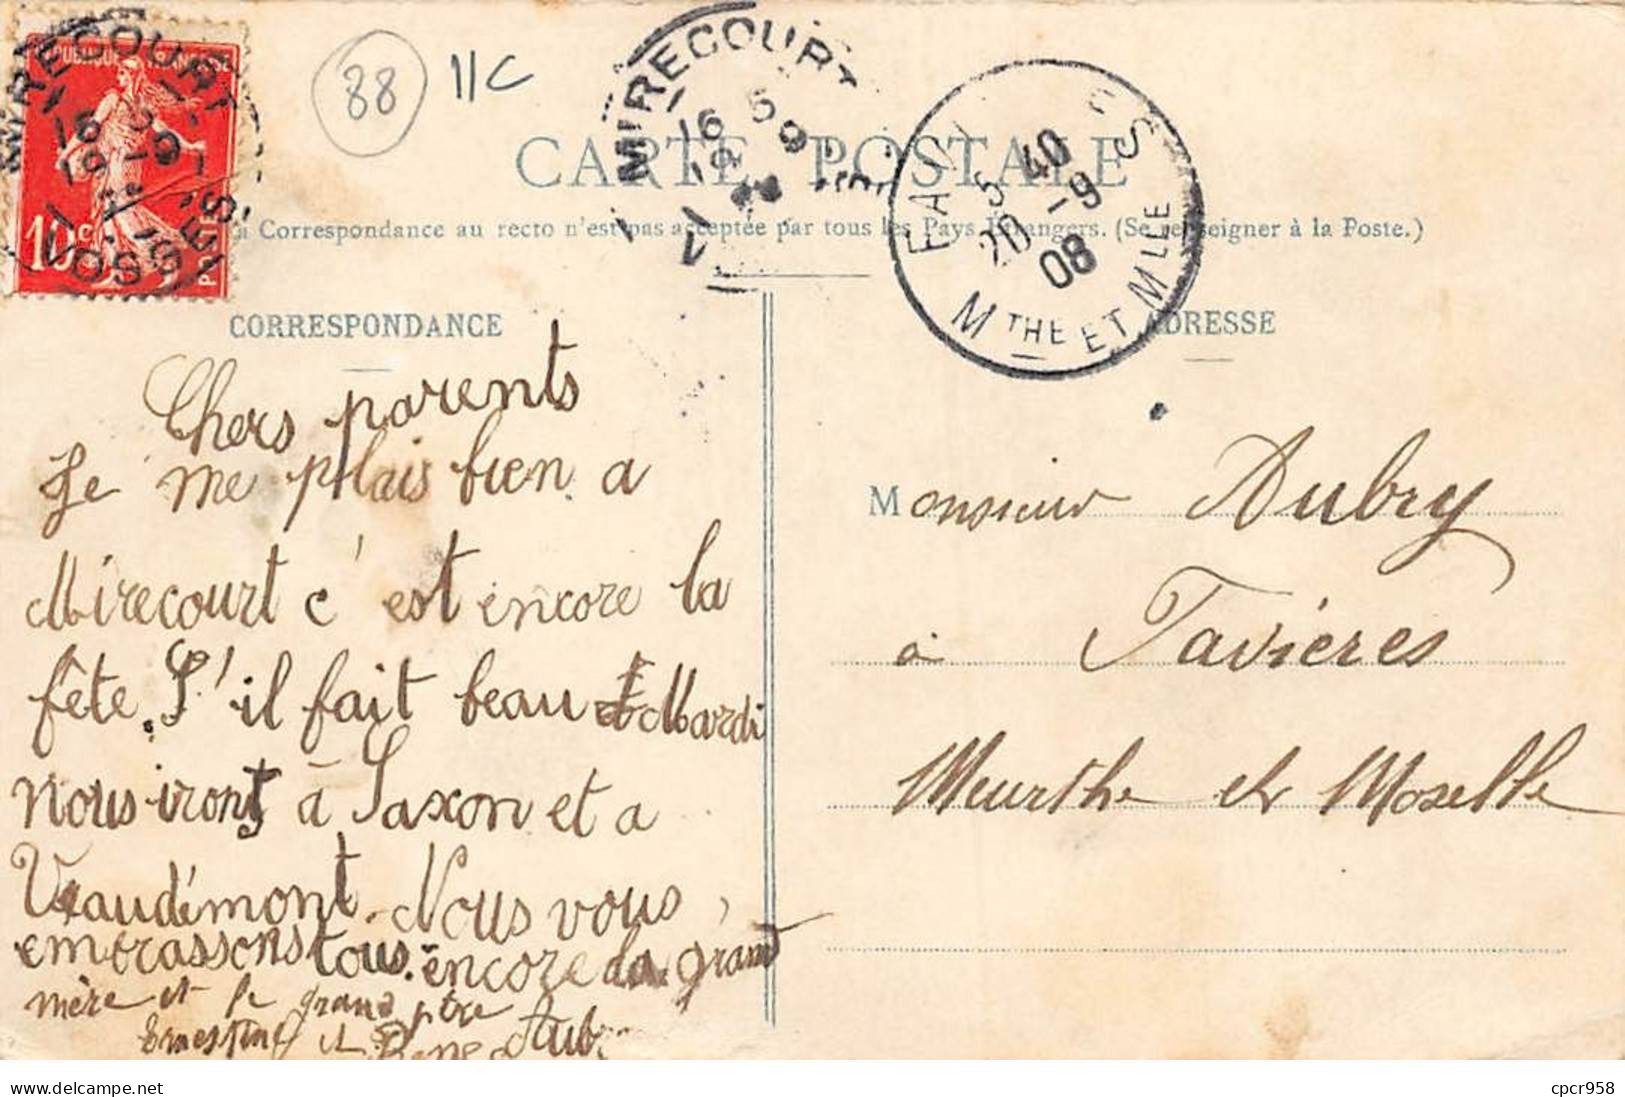 RÉPUBLIQUE FRANÇAISE
10c
POSTES
MIRECOURT
16 5
VOSGES
88
11C
MIRECOURT
16 5
9
V
CARTE POSTALE
la Correspondance au recto n'est pas acceptée par tous les Pays Étrangers. (Se renseigner à la Poste.)
5 40
20 -9
08
MTHE ET MLLE
CORRESPONDANCE
ADRESSE
Chers parents
Je me plais bien a
Mirecourt c'est encore la
fête. S'il fait beau Mardi
nous iront à Saxon et a
Vaudémont. Nous vous
embrassons tous. encore la grand
mère et le grand père
Ernestine et René Aub
Monsieur Aubry
à Tavières
Meurthe et Moselle
cpcr958